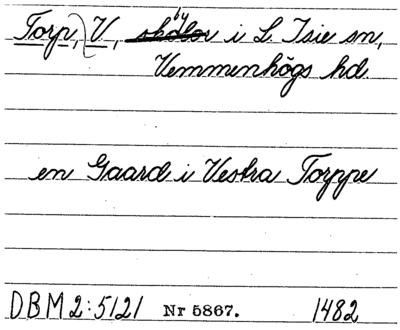 Torp, V, by i L. Isie sn,
Vemmenhögs hd.
en Gaard i Vestra Torppe
DBM 2:5121 Nr 5867. 1482